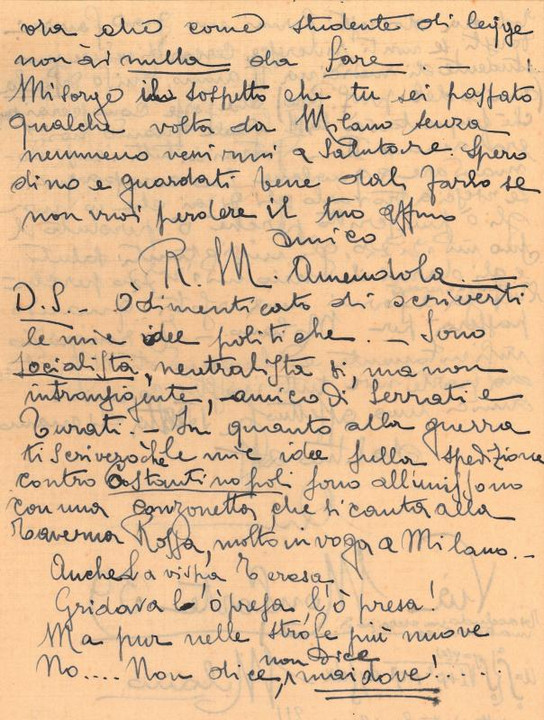 ora che come studente di legge
non ài nulla da fare . — . !
Mi sorge il sospetto che tu sei passato
qualche volta da Milano senza
nemmeno venirmi a salutare. Spero
di no e guardati bene dal farlo se
non vuoi perdere il tuo affmo
amico
R. M. Amendola. —
P.S. – Ò dimenticato di scriverti
le mie idee politiche. – Sono
socialista, neutralista sì, ma non
intransigente, – amico di Serrati e
Turati. – In quanto alla guerra
ti scriverò che le mie idee sulla spedizione
contro Costantinopoli sono all'unissono
con una canzonetta che si canta alla
Taverna Rossa, molto in voga a Milano. –
Anche La vispa Teresa
Gridava l'ò presa l'ò presa!
Ma pur nelle strofe più nuove
No.... Non dice, non dice mai dove! . . . . .